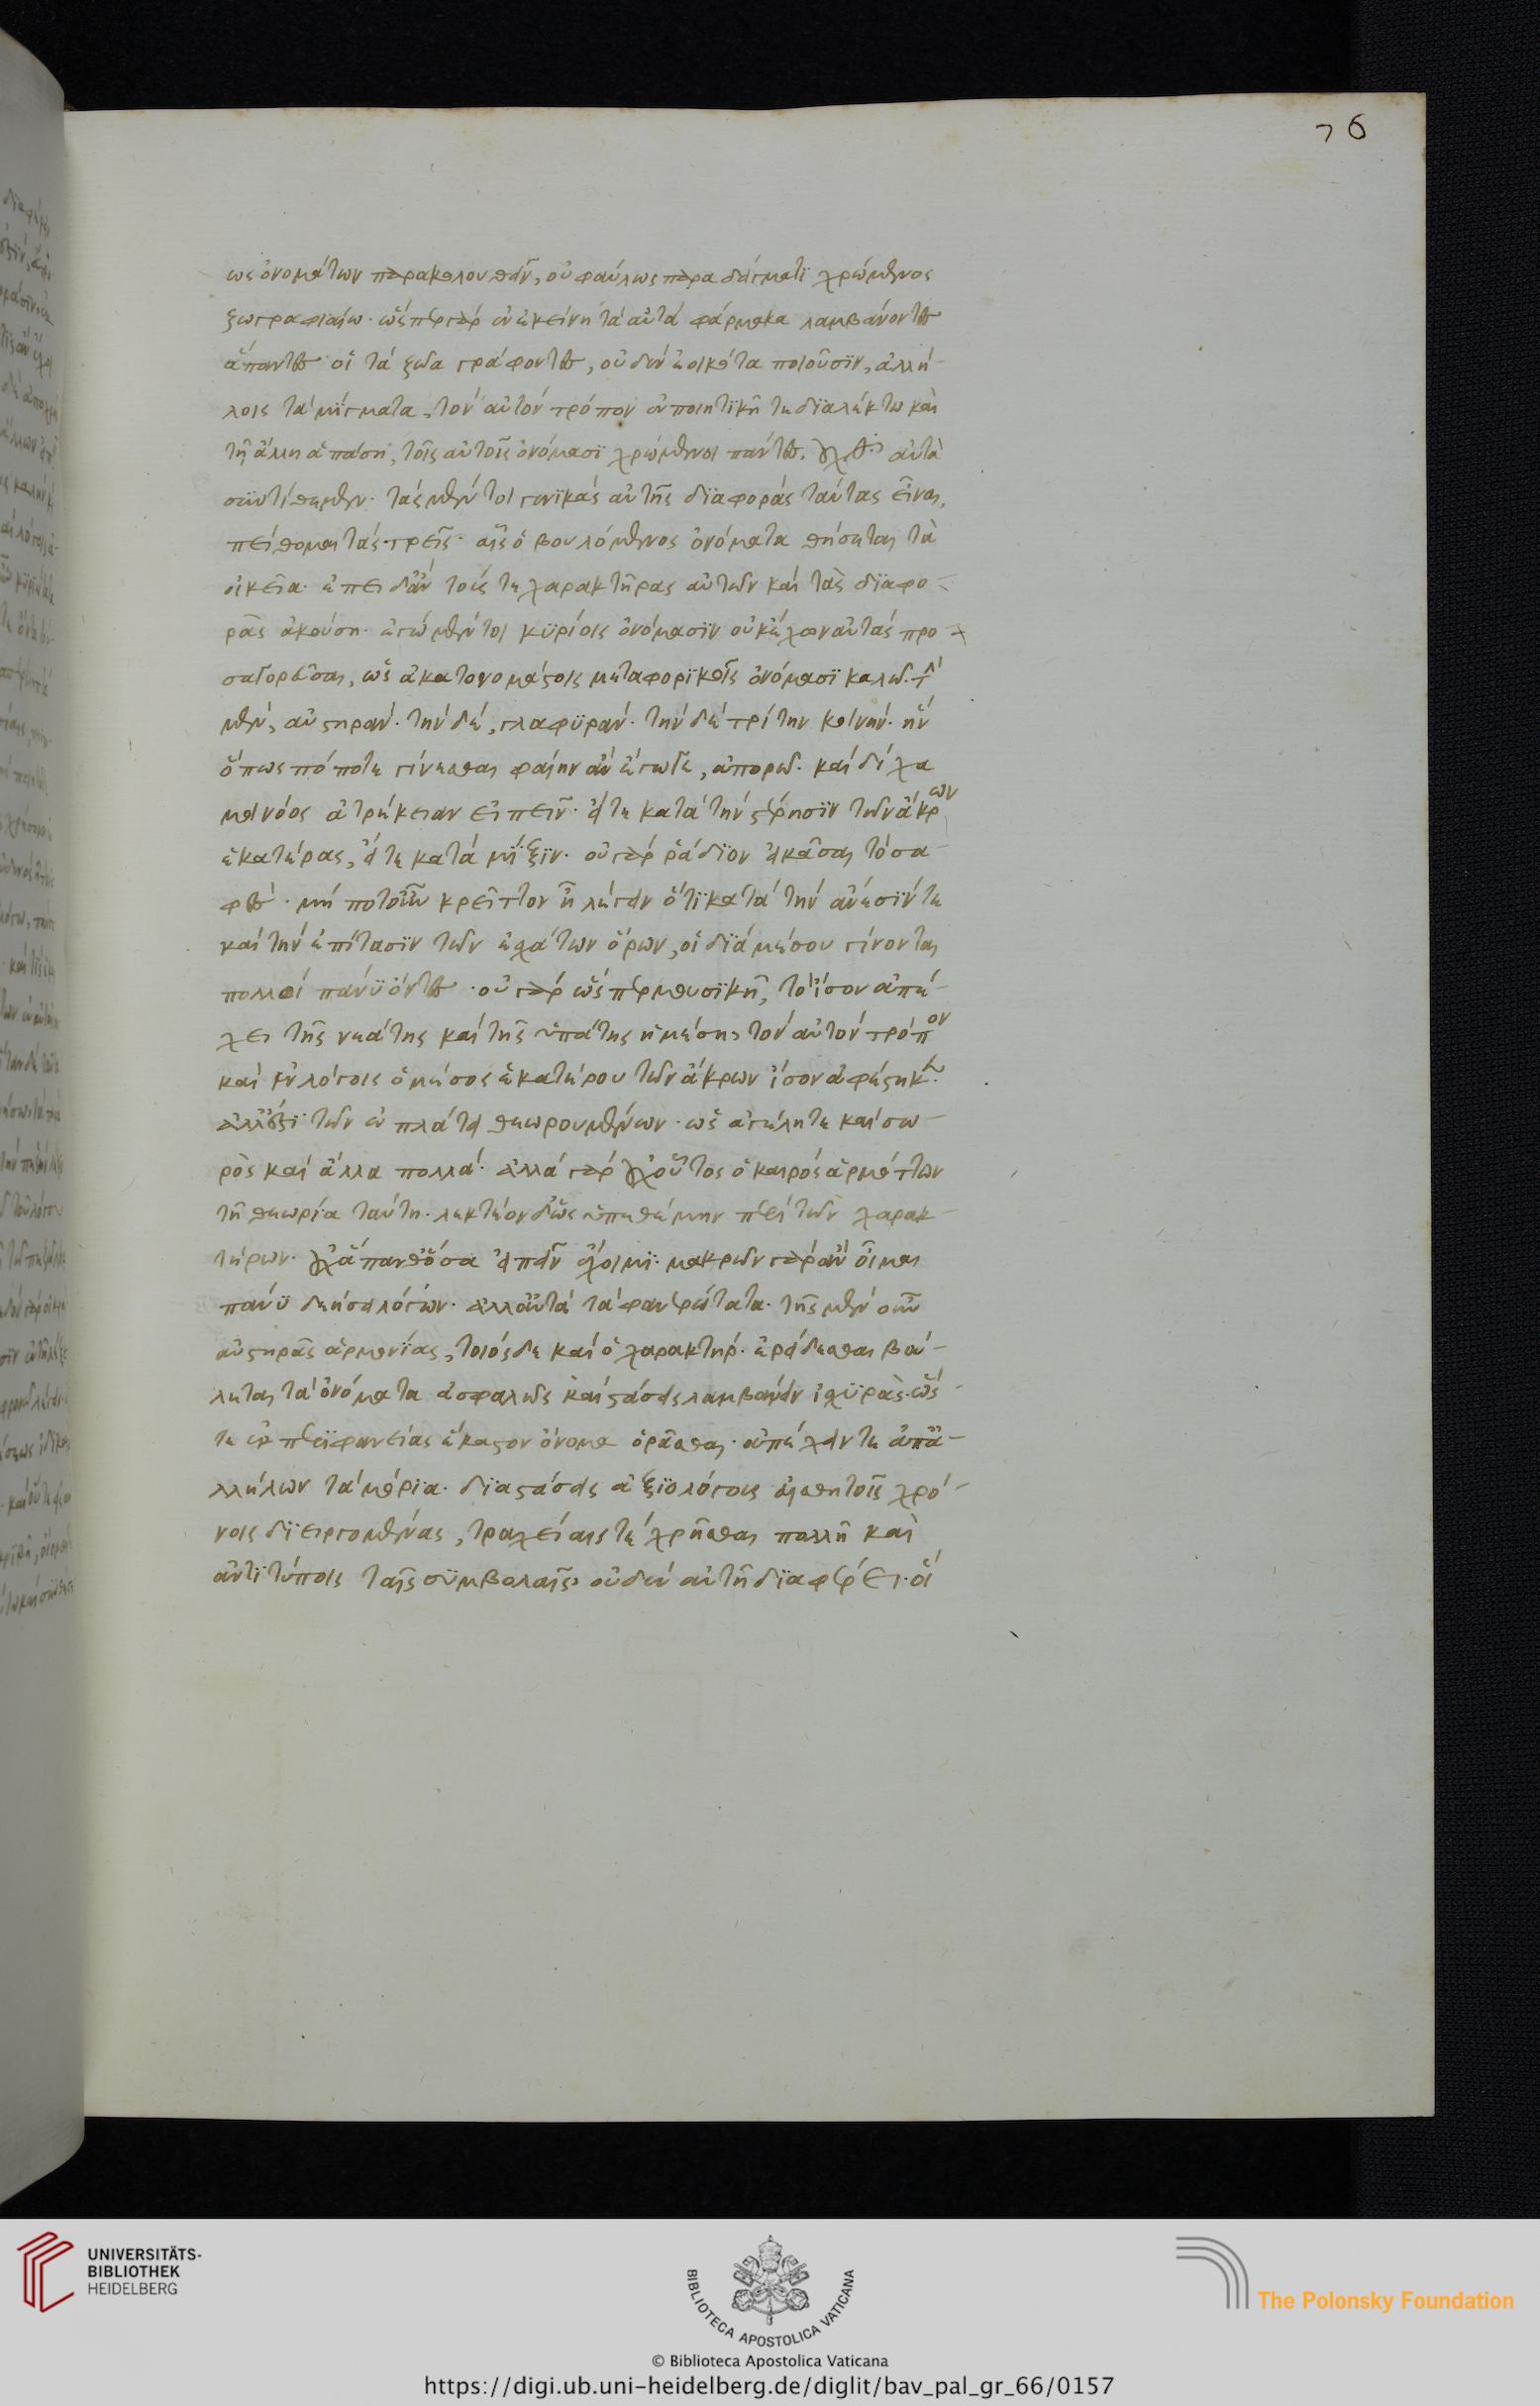 76
ως ὀνομάτων παρακολουθεῖν, οὐ φαύλως παραδείγματι χρώμενος
ζωγραφίαιω. ὥσπερ γὰρ ἐν ἐκείνη τὰ αὐτὰ φάρμακα λαμβάνοντες
ἅπαντες οἱ τὰ ζῶα γράφοντες, οὐδὲν ἐοικότα ποιοῦσϊν, ἀλλή-
λοις τὰ μίγματα, τὸν αὐτὸν τρόπον ἐν ποιητικῆ τε διαλέκτω καὶ
τῆ ἄλλη ἁπάση, τοῖς αὐτοῖς ὀνόμασϊ χρώμενοι πάντες, οὐχ αὐτὰ
συντίθεμεν. τὰς μέντοι γενικὰς αὐτῆς διαφορὰς ταύτας εἶναι,
πείθομαι τὰς τρεῖς. αἷς ὁ βουλόμενος ὀνόματα θήσεται τὰ
οἰκεῖα. ἐπειδὰν τούς τε χαρακτῆρας αὐτῶν καὶ τὰς διαφο-
ρὰς ἀκούση. ἐγὼ μέντοι κυρίοις ὀνόμασϊν οὐκ ἔχων αὐτὰς προ-
σαγορεῦσαι, ὡς ἀκατονομάστοις μεταφορικοῖς ὀνόμασϊ καλῶ. τὴν
μέν, αὐστηράν. τὴν δέ, γλαφυράν. τὴν δὲ τρίτην κοινήν. ἣν
ὅπως πόποτε γίνεσθαι φαίην ἂν ἔγωγε, ἀπορῶ. καὶ δίχα
μοι νόος ἀτρέκειαν εἰπεῖν. εἴτε κατὰ τὴν στέρησϊν τῶν ἄκρων
ἑκατέρας, εἴτε κατὰ μῖξϊν. οὐ γὰρ ῥάδιον εἰκάσαι τὸ σα-
φές. μή ποτ' οὖν κρεῖττον ἦ λέγειν ὅτι κατὰ τὴν ἄνεσίν τε
καὶ τὴν ἐπίτασϊν τῶν ἐσχάτων ὅρων, οἱ διὰ μέσου γίνονται
πολλοὶ πάνυ ὄντες. οὐ γὰρ ὥσπερ μουσικῆ, τὸ ἴσον ἀπέ-
χει τῆς νεάτης καὶ τῆς ὑπάτης ἡ μέση, τὸν αὐτὸν τρόπον
καὶ ἐν λόγοις ὁ μέσος ἑκατέρου τῶν ἄκρων ἴσον ἀφέστηκεν.
ἀλλ' ἔστϊ τῶν ἐν πλάτει θεωρουμένων. ὡς ἀγέλη τε καὶ σω-
ρὸς καὶ ἄλλα πολλά. ἀλλὰ γὰρ οὐχ οὗτος ὁ καιρὸς ἁρμόττων
τῆ θεωρία ταύτη. λεκτέον δ' ὡς ὑπεθέμην περὶ τῶν χαρακ-
τήρων. οὐχ ἅπανθ' ὅσα εἰπεῖν ἔχοιμϊ. μακρῶν γὰρ ἂν οἶμαι
πάνυ δεήσει λόγων. ἀλλ' αὐτὰ τὰ φανερώτατα. τῆς μὲν οὖν
αὐστηρᾶς ἁρμονίας, τοιόσδε καὶ ὁ χαρακτήρ. ἐρείδεσθαι βού-
λεται τὰ ὀνόματα ἀσφαλῶς καὶ στάσεις λαμβάνειν ἰσχυράς. ὥσ-
τε ἐκ περιφανείας ἕκαστον ὄνομα ὁρᾶσθαι. ἀπέχειν τε ἀπ' ἀ-
λλήλων τὰ μόρια. διαστάσεις ἀξιολόγοις αἰσθητοῖς χρό-
νοις διειργομένας, τραχείαις τε χρῆσθαι πολλῆ καὶ
ἀντιτύποις ταῖς συμβολαῖς, οὐδὲν αὐτῆ διαφέρει. οἷ
UNIVERSITÄTS-
BIBLIOTHEK
HEIDELBERG
BIBLIOTECA APOSTOLICA VATICANA
The Polonsky Foundation
© Biblioteca Apostolica Vaticana
https://digi.ub.uni-heidelberg.de/diglit/bav_pal_gr_66/0157